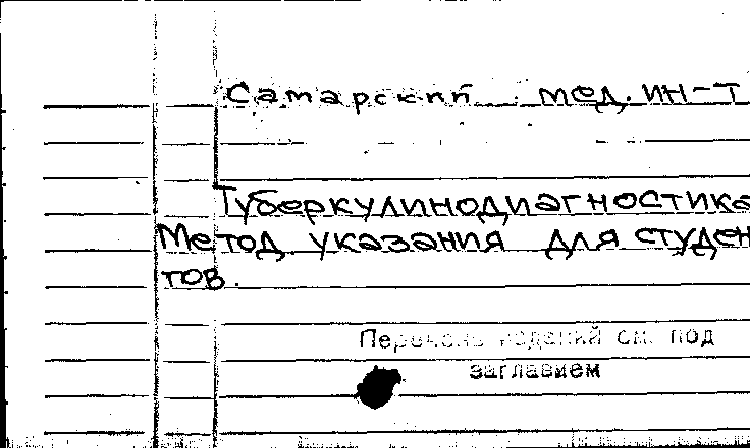 Самарский мед. ин-т
Туберкулинодиагностика
Метод. указания для студен
тов.
Перечень изданий см. под
заглавием